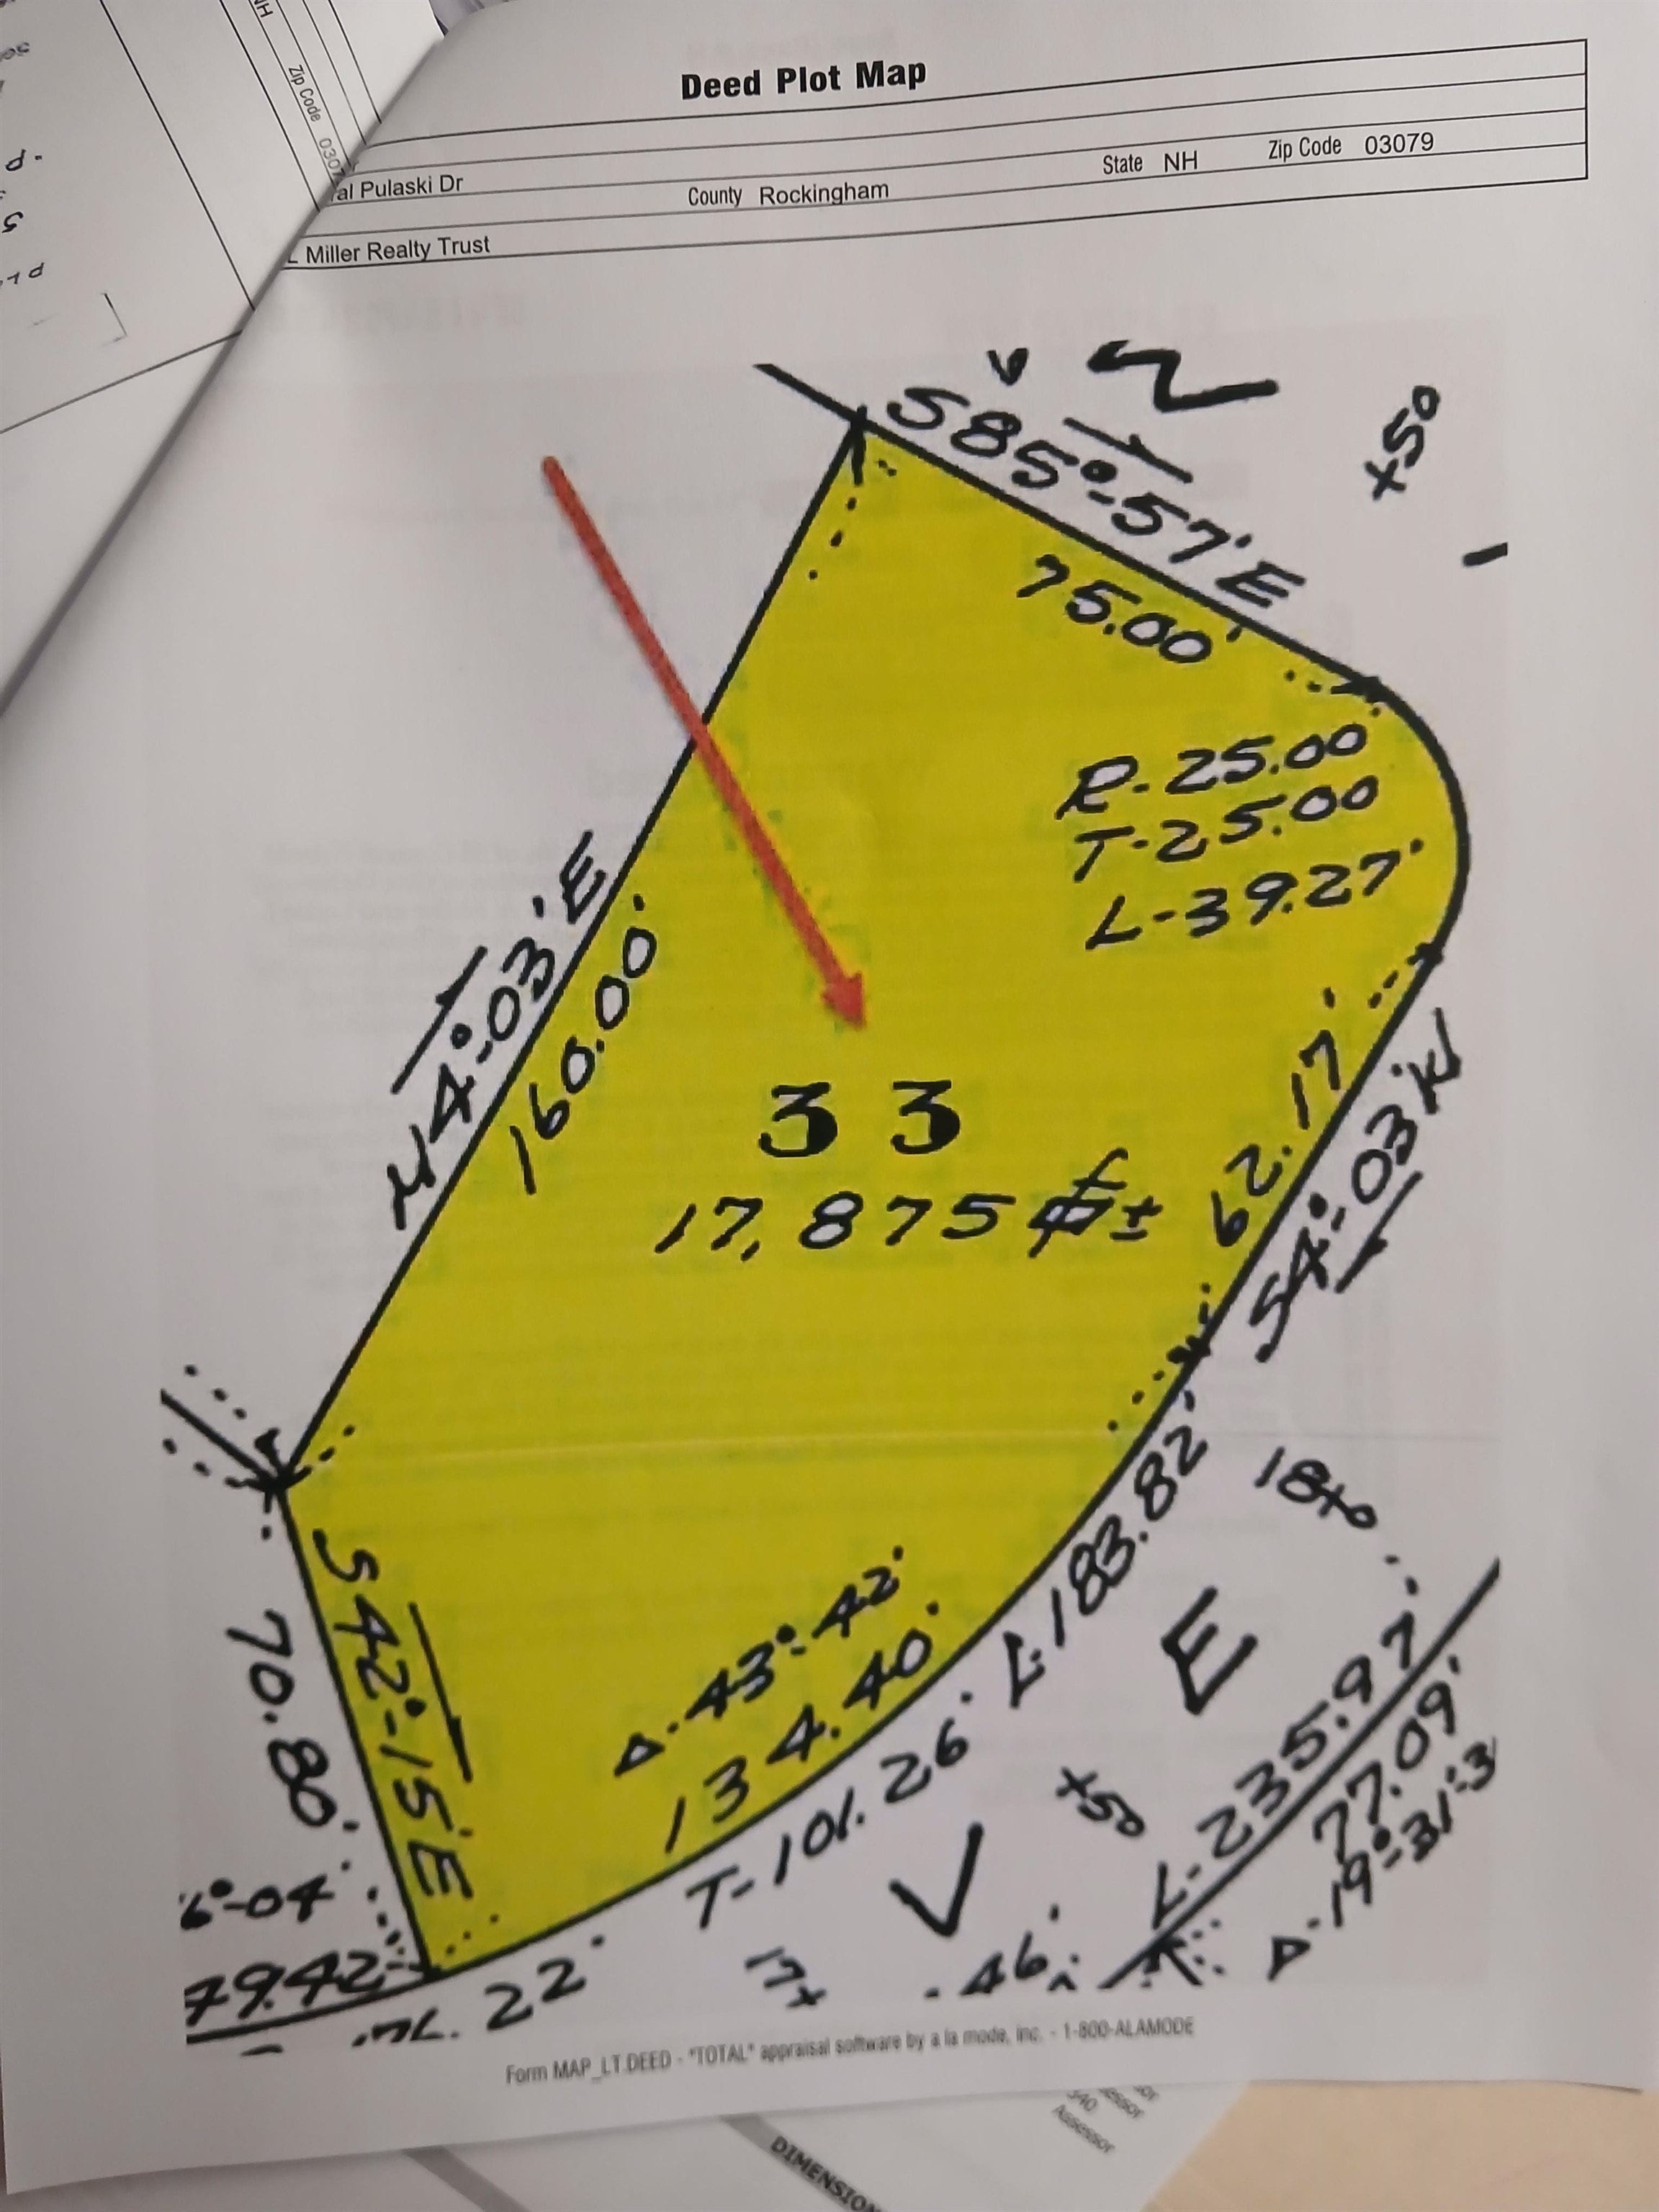 Deed Plot Map
al Pulaski Dr County Rockingham State NH Zip Code 03079
Miller Realty Trust
Zip Code 0307
S85°-57'E
75.00'
+50
R-25.00
T-25.00
L-39.27'
N4°-03'E
160.00'
33
17,875
62.17'
S4°-03'W
S42°-15'E
70.80'
Δ-43°-42'
134.40'
L-183.82'
T-101.26'
18+0
E
V
+50
17+
L-235.97
77.09'
Δ-19°-31'-3
6°-04'
79.42
22'
.46'
Form MAP_LT.DEED - "TOTAL" appraisal software by a la mode, inc. - 1-800-ALAMODE
Assessor
DIMENSION